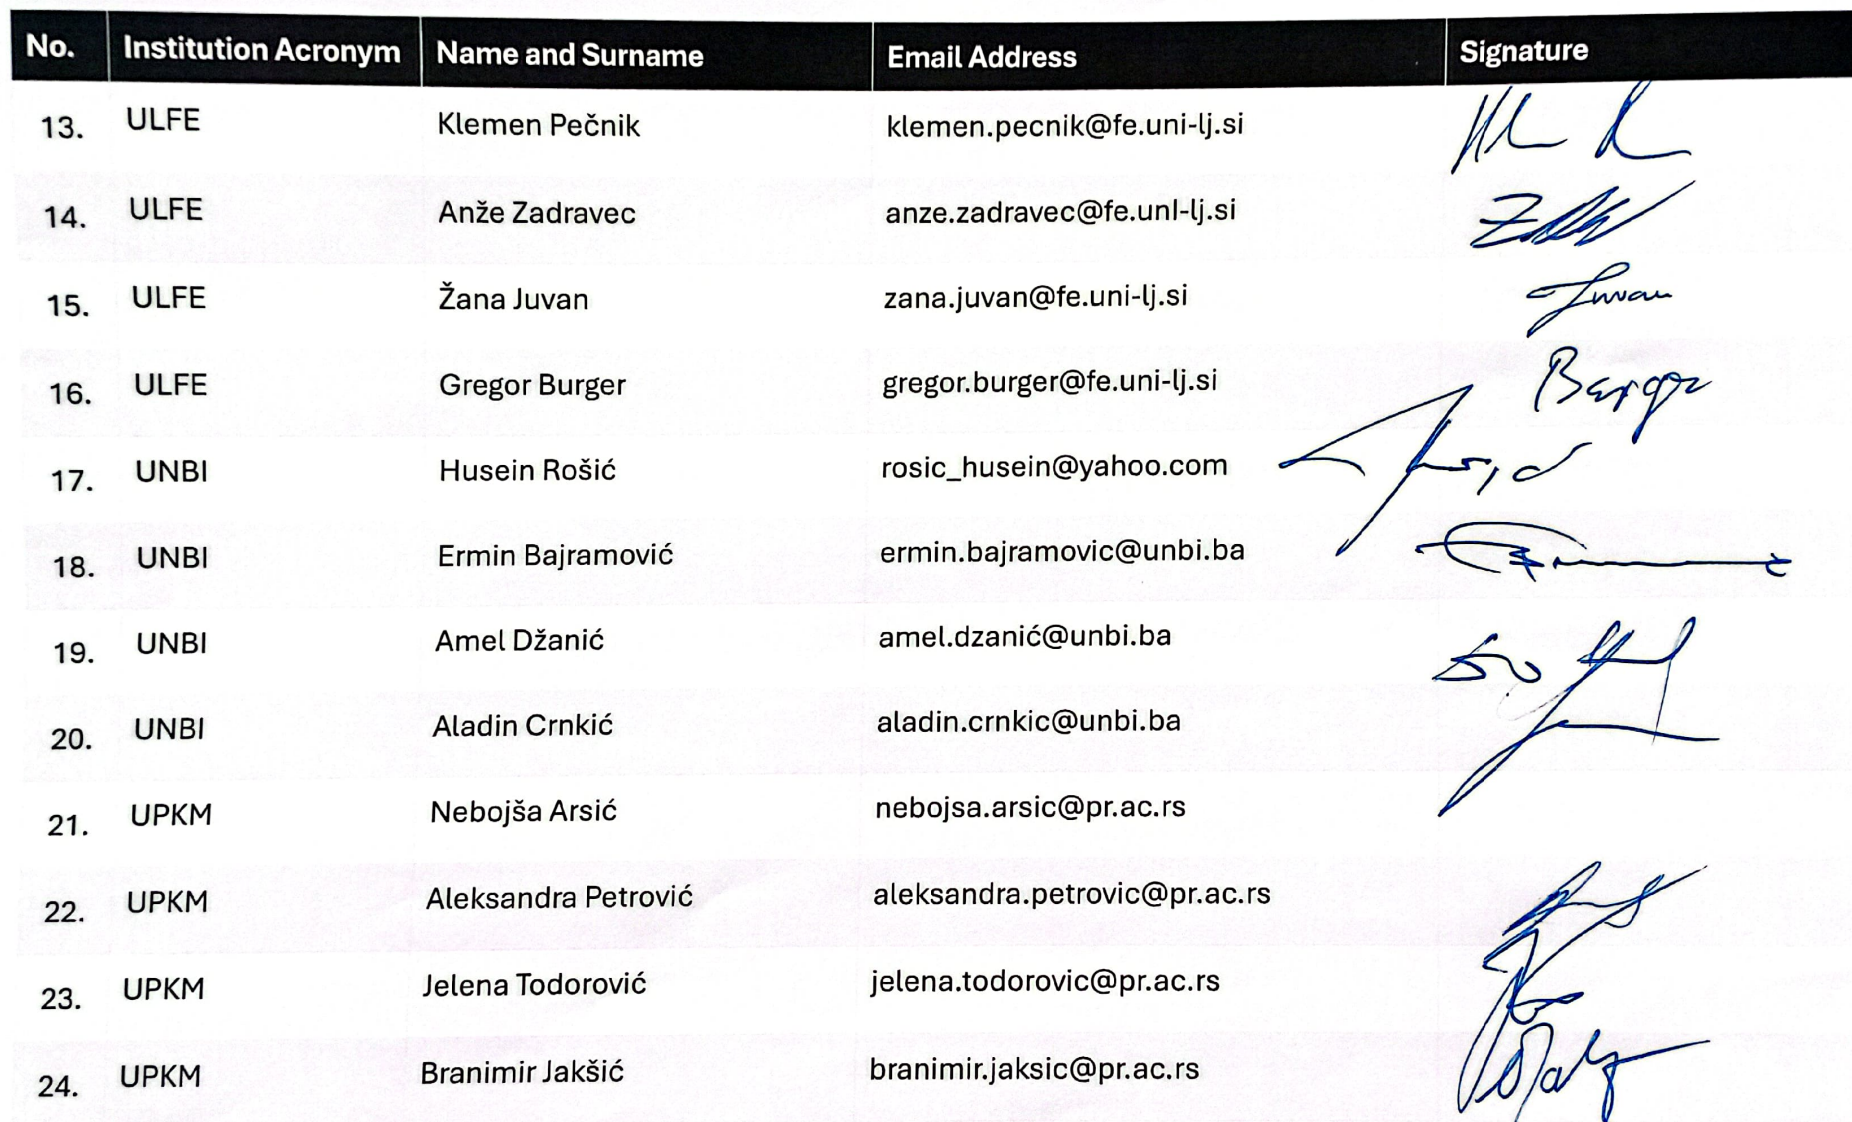 No. Institution Acronym Name and Surname Email Address Signature
13. ULFE Klemen Pečnik klemen.pecnik@fe.uni-lj.si
14. ULFE Anže Zadravec anze.zadravec@fe.uni-lj.si
15. ULFE Žana Juvan zana.juvan@fe.uni-lj.si Juvan
16. ULFE Gregor Burger gregor.burger@fe.uni-lj.si Burger
17. UNBI Husein Rošić rosic_husein@yahoo.com
18. UNBI Ermin Bajramović ermin.bajramovic@unbi.ba
19. UNBI Amel Džanić amel.dzanić@unbi.ba
20. UNBI Aladin Crnkić aladin.crnkic@unbi.ba
21. UPKM Nebojša Arsić nebojsa.arsic@pr.ac.rs
22. UPKM Aleksandra Petrović aleksandra.petrovic@pr.ac.rs
23. UPKM Jelena Todorović jelena.todorovic@pr.ac.rs
24. UPKM Branimir Jakšić branimir.jaksic@pr.ac.rs